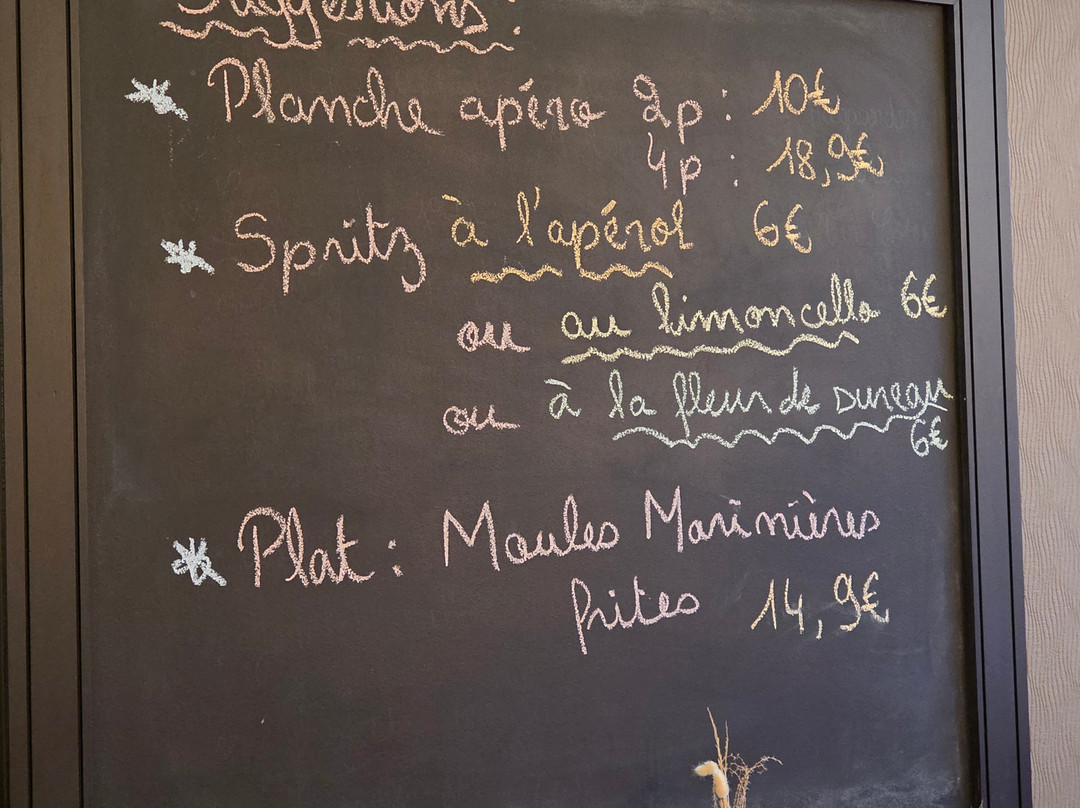 Suggestions :
* Planche apéro 2p : 10€
4p : 18,9€
* Spritz à l'apérol 6€
ou au limoncello 6€
ou à la fleur de sureau
6€
* Plat : Moules Marinières
frites 14,9€